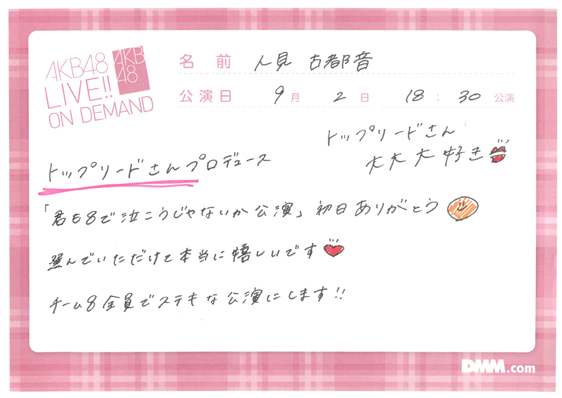 AKB48
LIVE!!
ON DEMAND
AKB
48
名前 人見 古都音
公演日 9月 2日 18:30 公演
トップリードさん
大大大好き
トップリードさんプロデュース
「君も8で泣こうじゃないか公演」初日ありがとう
選んでいただけて本当に嬉しいです
チーム8全員でステキな公演にします!!
DMM.com